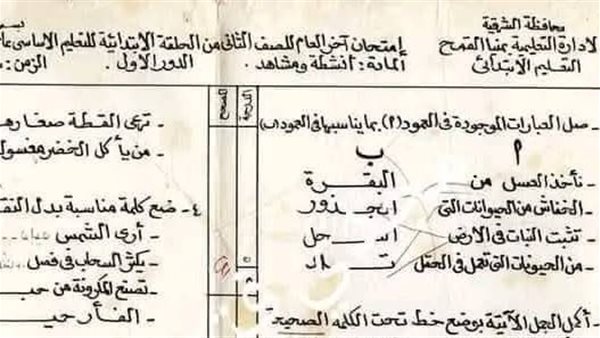 محافظة الشرقية
لادارة التعليمية بمنيا القمح
التعليم الابتدائى
إمتحان آخر العام للصف الثانى من الحلقة الابتدائية للتعليم الاساسى
المادة : أنشطة ومشاهد .
الدور الاول .
الزمن :
الدرجة
المصحح
ـ صل العبارات الموجودة فى العمود (٢) بما يناسبها فى العمود (ب)
٢ ب
ـ نأخذ العسل من البقـــرة
ـ الخفاش من الحيوانات التى
ـ تثبت النبات فى الأرض
ـ من الحيوانات التى تعمل فى الحقل تـــلد
أكمل الجمل الآتية بوضع خط تحت الكلمة الصحيحة
ـ ترعى القـطـة صغارها
ـ من يأكل الخضر مغسول
٤ ـ ضع كلمة مناسبة بدل النقـ
ـ أرى الشمس
ـ يكثر السحاب فى فصل
ـ تصنع المكرونة من حبـ
ـ الفــأر حيـ